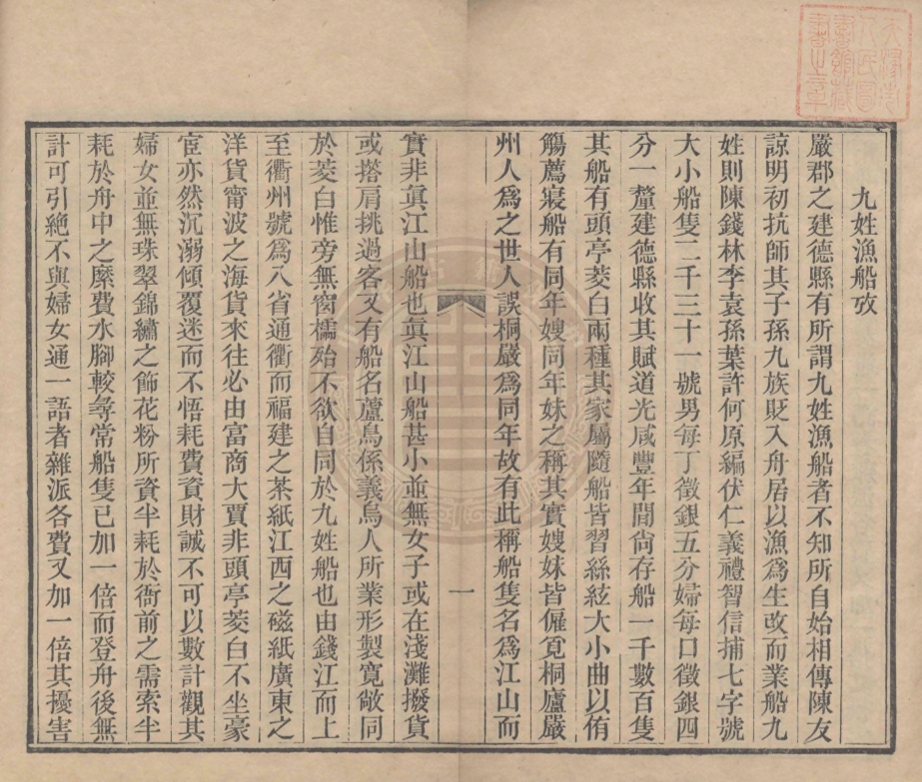 九姓漁船攷
嚴郡之建德縣有所謂九姓漁船者不知所自始相傳陳友
諒明初抗師其子孫九族貶入舟居以漁爲生改而業船九
姓則陳錢林李袁孫葉許何原編伏仁義禮智信捕七字號
大小船隻二千三十一號男每丁徵銀五分婦每口徵銀四
分一釐建德縣收其賦道光咸豐年間尙存船一千數百隻
其船有頭亭茭白兩種其家屬隨船皆習絲絃大小曲以侑
觴薦寢船有同年嫂同年妹之稱其實嫂妹皆僱覓桐廬嚴
州人爲之世人誤桐嚴爲同年故有此稱船隻名爲江山而
一
實非眞江山船也眞江山船甚小並無女子或在淺灘撥貨
或搭肩挑過客又有船名蘆鳥係義烏人所業形製寬敞同
於茭白惟旁無窗檽殆不欲自同於九姓船也由錢江而上
至衢州號爲八省通衢而福建之茶紙江西之磁紙廣東之
洋貨甯波之海貨來往必由富商大賈非頭亭茭白不坐豪
宦亦然沉溺傾覆迷而不悟耗費資財誠不可以數計觀其
婦女並無珠翠錦繡之飾花粉所資半耗於衙前之需索半
耗於舟中之糜費水腳較尋常船隻已加一倍而登舟後無
計可引絕不與婦女通一語者雜派各費又加一倍其擾害
大縣市人民圖書館藏書之章